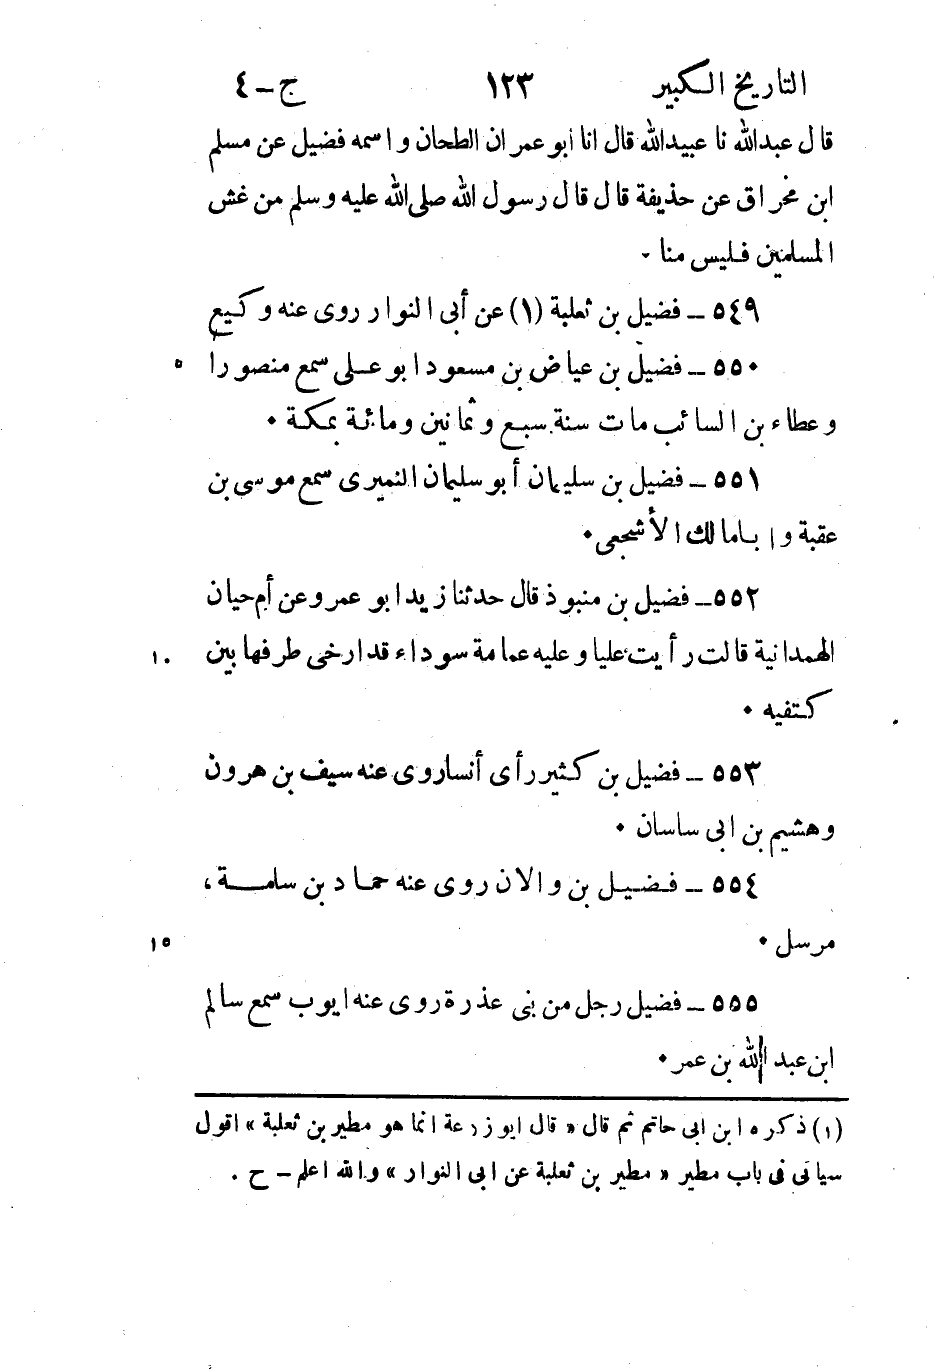 التاريخ الكبير ١٢٣ ج-٤
قال عبدالله نا عبيدالله قال انا ابو عمران الطحان واسمه فضيل عن مسلم
ابن مخراق عن حذيفة قال قال رسول الله صلى الله عليه وسلم من غش
المسلمين فليس منا -
٥٤٩ - فضيل بن ثعلبة (١) عن أبى النوار روى عنه وكيع
٥٥٠ - فضيل بن عياض بن مسعود ابو على سمع منصورا ٥
وعطاء بن السائب مات سنة سبع وثمانين ومائة بمكة ٠
٥٥١ - فضيل بن سليمان أبو سليمان النميرى سمع موسى بن
عقبة و ابا مالك الأشجعى ٠
٥٥٢ - فضيل بن منبوذ قال حدثنا زيد ابو عمرو عن أم حيان
الهمدانية قالت رأيت عليا وعليه عمامة سوداء قد ارخى طرفها بين ١٠
كتفيه ٠
٥٥٣ - فضيل بن كثير رأى أنسا روى عنه سيف بن هرون
وهشيم بن ابى ساسان ٠
٥٥٤ - فضيل بن والان روى عنه حماد بن سلمة،
مرسل ٠ ١٥
٥٥٥ - فضيل رجل من بنى عذرة روى عنه ايوب سمع سالم
ابن عبد الله بن عمر ٠
(١) ذكره ابن ابى حاتم ثم قال « قال ابو زرعة انما هو مطير بن ثعلبة » اقول
سياتى فى باب مطير « مطير بن ثعلبة عن ابى النوار » والله اعلم - ح .